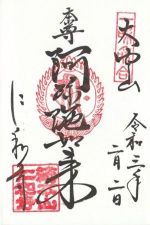 大内山
本尊
阿弥陀如来
仁和寺
令和三年
二月二日